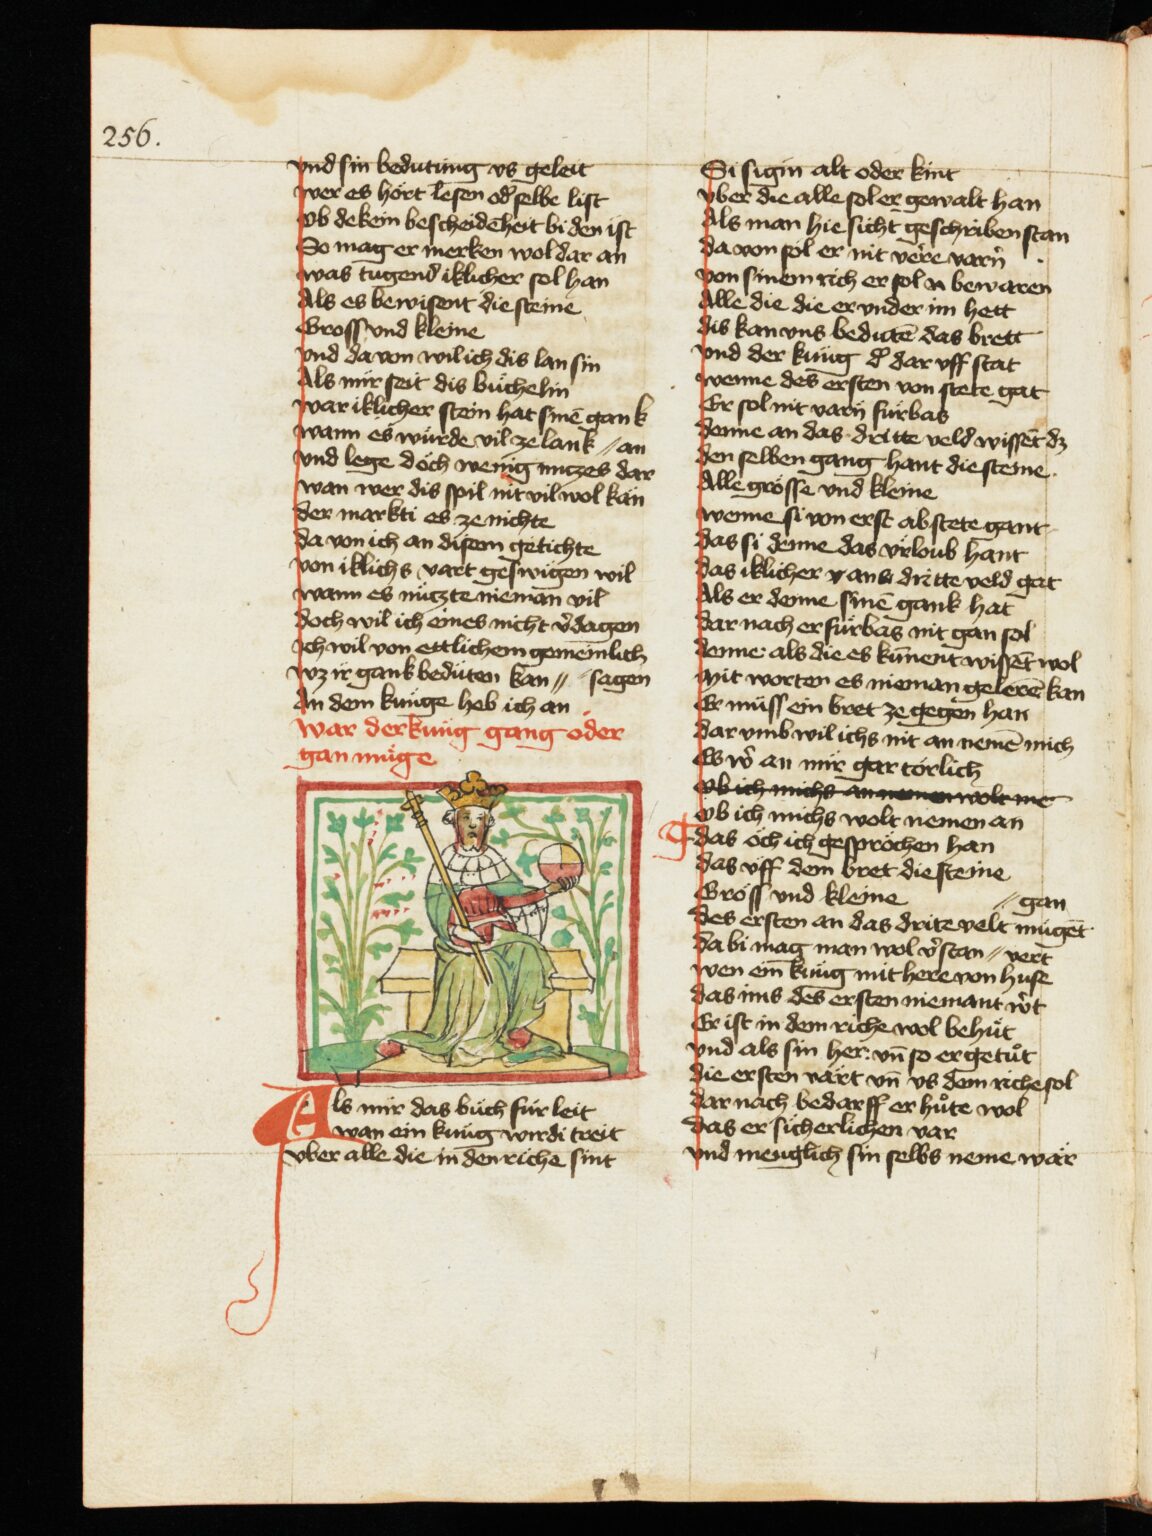 256.
vnd sin bedutung vs geleit
wer es hört lesen od̓ selbe list
Ob dekein bescheidēheit bi den ist
So mag er merken wol dar an
was tugend iklicher sol han
Als es bewisent die steine
Gross vnd kleine
vnd da von wil ich dis lan sin
Als mir seit dis büchelin
war iklicher stein hat sinē gank
wann es würde vil ze lank // an
vnd lege doch wenig nuczes dar
wan wer dis spil nit vil wol kan
der markti es ze nichte
da von ich an disem getichte
von iklichs vart geswigen wil
wann es nüczte nieman vil
doch wil ich eines nicht v̓dagen
Ich wil von ettlichem gemeinlich
wz ir gank bedüten kan // sagen
An dem künge heb ich an
war der küng gang oder
gan müge
Als mir das büch für leit
wan ein küng wirdi treit
vber alle die in den riche sint
Si sigin alt oder kint
vber die alle sol er gewalt han
Als man hie sicht geschriben stan
da von sol er nit verre varn̄
von sinem rich er sol bewaren
Alle die die er vnder im hett
dis kan vns bedutē das brett
vnd der küng d̓ dar vff stat
wenne des ersten von stete gat
Er sol nit varn̄ fürbas
denne an das dritte veld wissēt dz
den selben gang hant die steine
Alle grosse vnd kleine
wenne si von erst ab stete gant
das si denne das vrloub hant
das iklicher an dritte veld gat
Als er denne sinē gank hat
dar nach er fürbas nit gan sol
denne als die es kūnent wissēt wol
Mit worten es nieman gelerē kan
Er müss ein bret ze gegen han
dar vmb wil ichs nit an nemē mich
Es w̓ an mir gar törlich
ob ich michs an nemen wolt me
Ob ich michs wolt nemen an
das och ich gesprochen han
das vff dem bret die steine
Gross vnd kleine // gan
des ersten an das drite velt mügēt
da bi mag man wol v̓stan // vert
wen ein küng mit here von huse
das ims des ersten niemant w̓t
Er ist in dem riche wol behüt
vnd als sin her vn̄ so er getůt
die ersten vart vn̄ vs dem riche sol
dar nach bedarff er hůte wol
das er sicherlichen var
vnd menglich sin selbs neme war